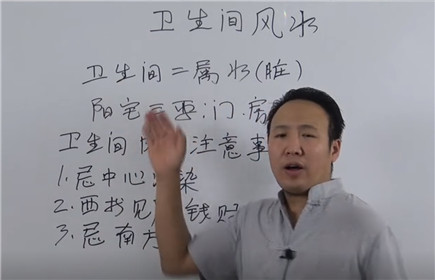 卫生间风水
卫生间二属水(脏)
阳宅三要:门.房
卫生间 注意事
1.忌中心 染
2.西 见 钱财
3.忌南方